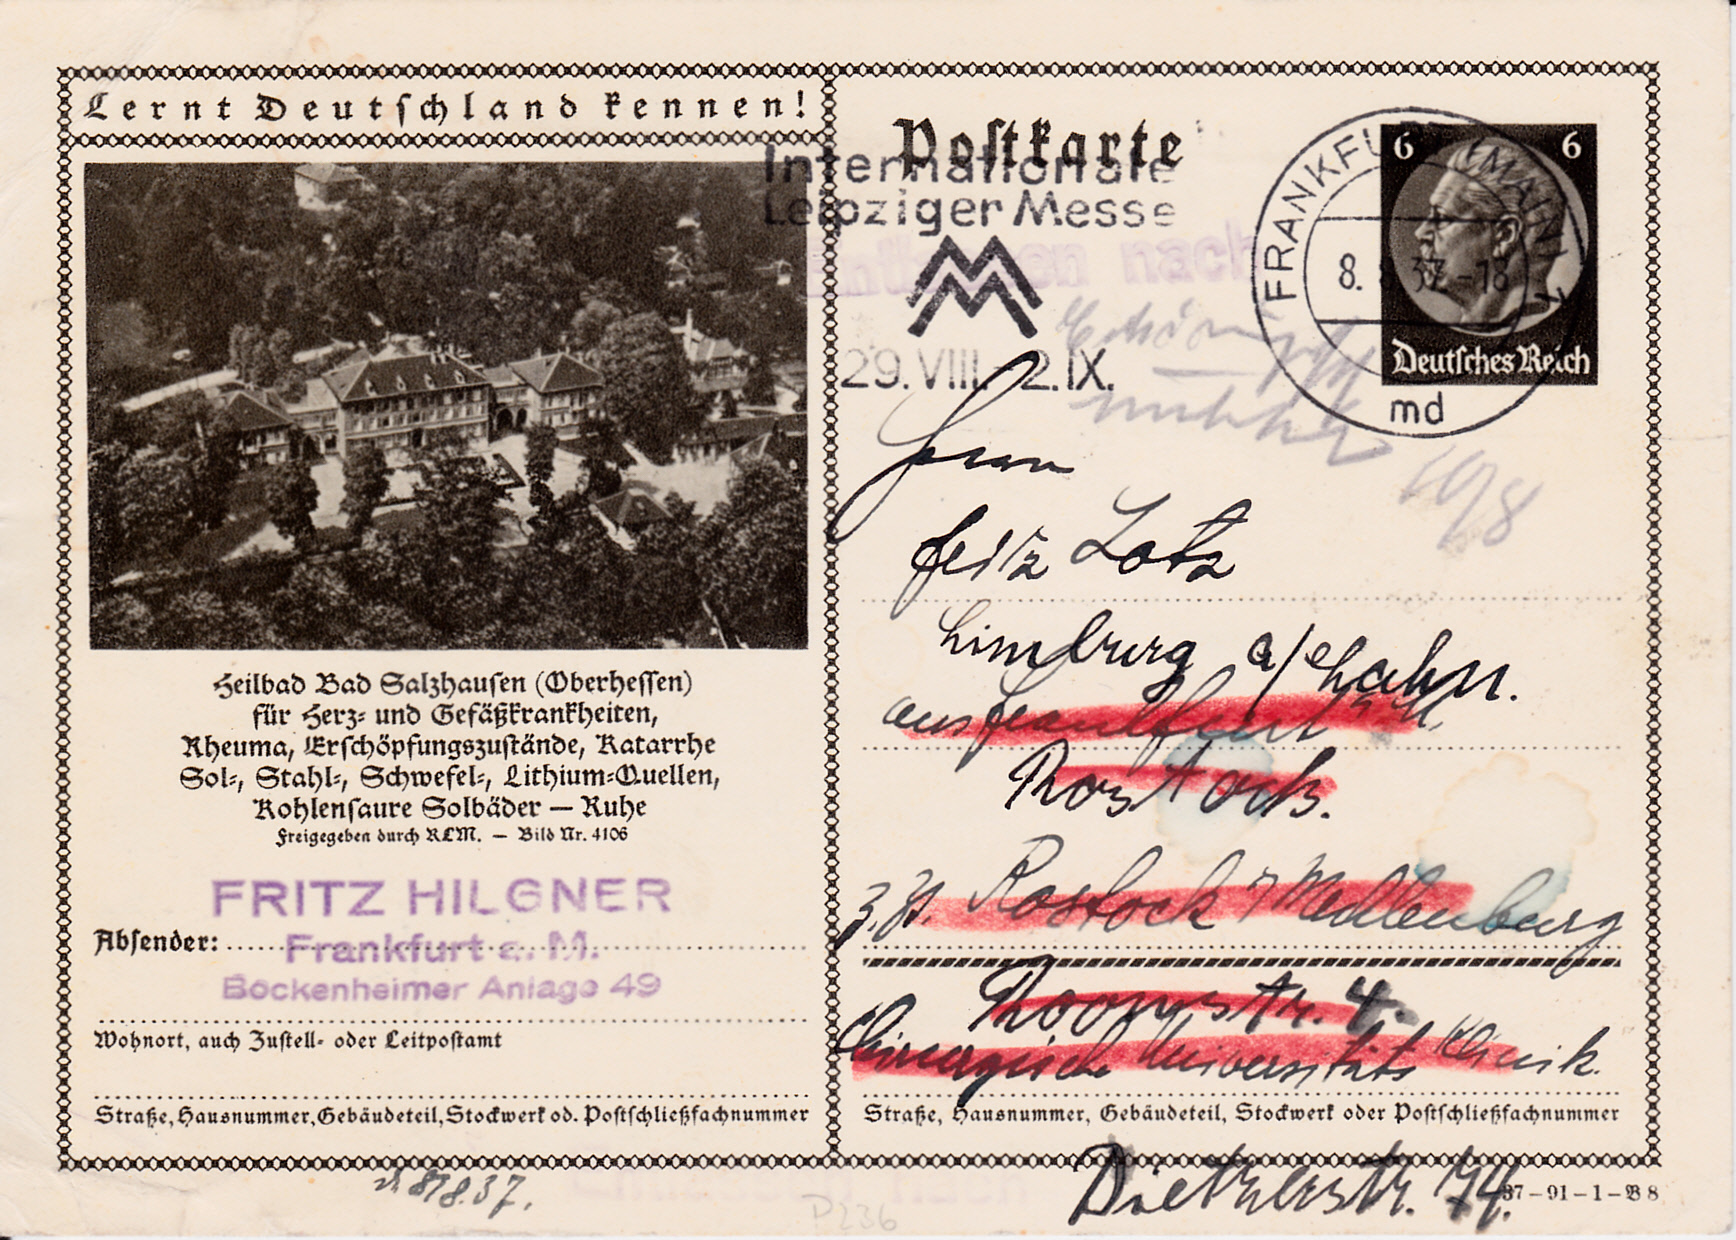 Lernt Deutschland kennen!
Heilbad Bad Salzhausen (Oberhessen)
für Herz- und Gefäßkrankheiten,
Rheuma, Erschöpfungszustände, Katarrhe
Sol-, Stahl-, Schwefel-, Lithium-Quellen,
Kohlensaure Solbäder — Ruhe
Freigegeben durch RLM. — Bild Nr. 4106
FRITZ HILGNER
Absender:
Frankfurt a. M.
Bockenheimer Anlage 49
Wohnort, auch Zustell- oder Leitpostamt
Straße, Hausnummer, Gebäudeteil, Stockwerk od. Postschließfachnummer
8/8.37.
P236
Postkarte
Internationale
Leipziger Messe
29. VIII. 2. IX.
nach
FRANKFURT (MAIN)
8. 8. 37. -18
md
6 6
Deutsches Reich
10/8
Herrn
Fritz Lotz
Limburg a/Lahn.
aus Frankfurt
Rostock.
z. Zt. Rostock / Mecklenburg
Roonstr. 4.
Chirurgische Universitäts Klinik.
Straße, Hausnummer, Gebäudeteil, Stockwerk oder Postschließfachnummer
37-91-1-B8